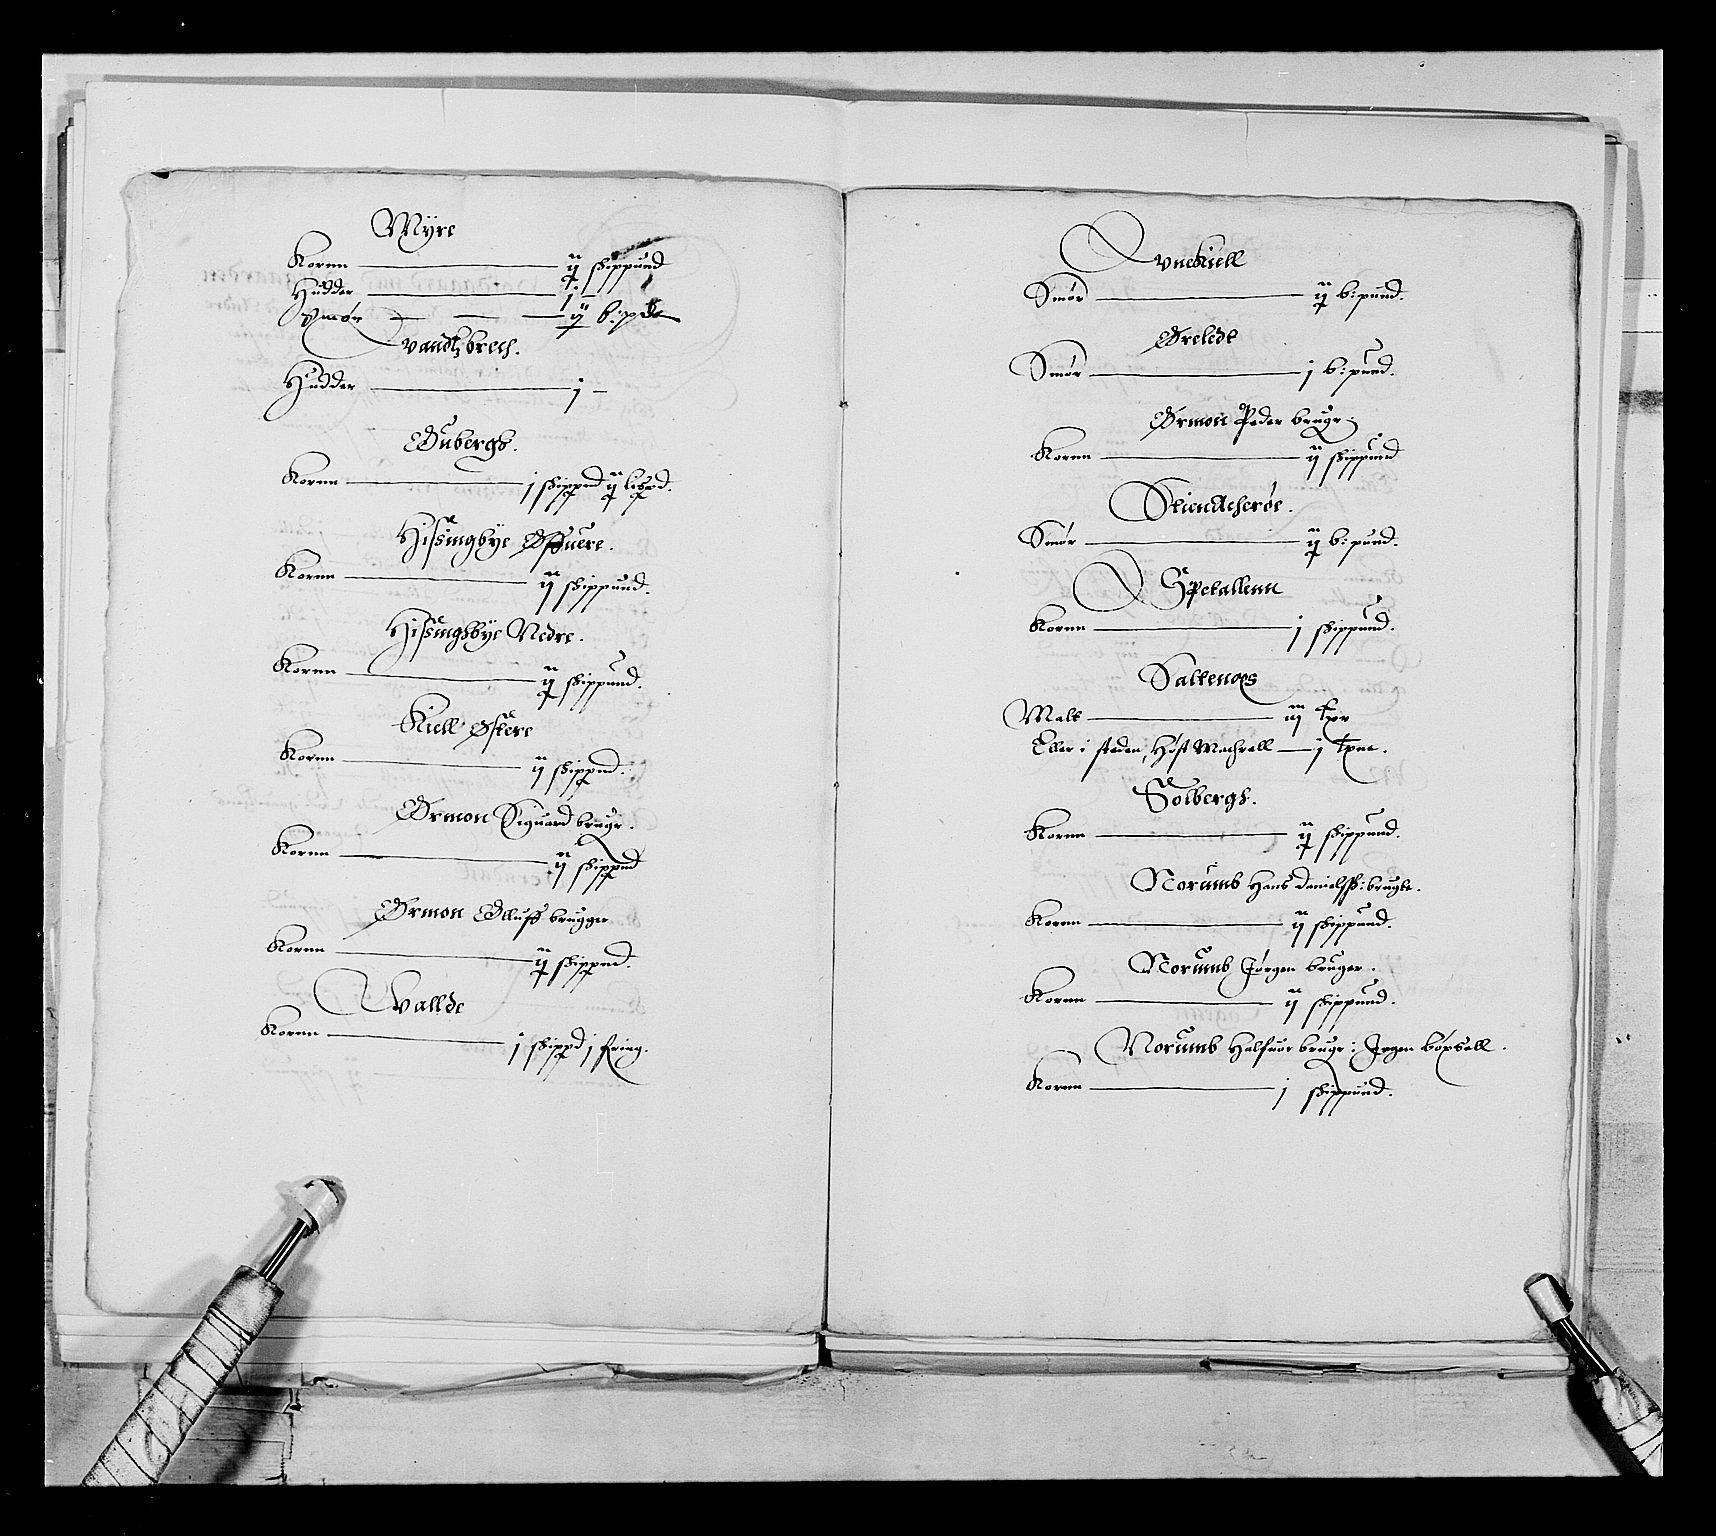 Myre
Kornn — ij skippund
Hudder — j —
Smør — ij b: pd
Vandtzbrech.
Hudder — j —
Gubergh.
Kornn — j skippnd ij lispd.
Hissingbye Øffuere.
Kornn — ij skippund.
Hissingsbye Nedre.
Kornn — ij skippund.
Kiell Østere
Kornn — ij skippnd.
Ormon Siguard brugr.
Kornn — ij skippnd
Ormon Olluff brugger
Kornn — ij skippnd.
Wallde
Kornn — j skippd j fring.
Smør — ij b: pund.
Øreledt
Smør — j b: pund.
Ormon Peder brugr:
Kornn — ij skippund
Stienacherøe.
Smør — ij b: pund.
Spetallenn
Kornn — j skippund.
Saltenoes
Malt — iij tpr
Eller i steden, Høst Machrell — j tpne.
Solbergh.
Kornn — ij skippund.
Norumb Hans Danielssh: brugte.
Kornn — ij skippund.
Norumb Jørgen bruger.
Kornn — ij skippund.
Norumb Halfuor brugr:
Kornn — j skippund.